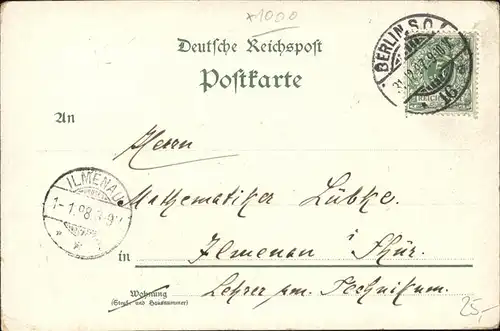 ×1000
Deutsche Reichspost
Postkarte
BERLIN S.O.
31.12.97.
16
An
Herrn
Mathematiker Lübke.
ILMENAU
1-1.98.
in Ilmenau i Thür.
Wohnung
(Straße und Hausnummer)
Lehrer am Technikum.
25,-